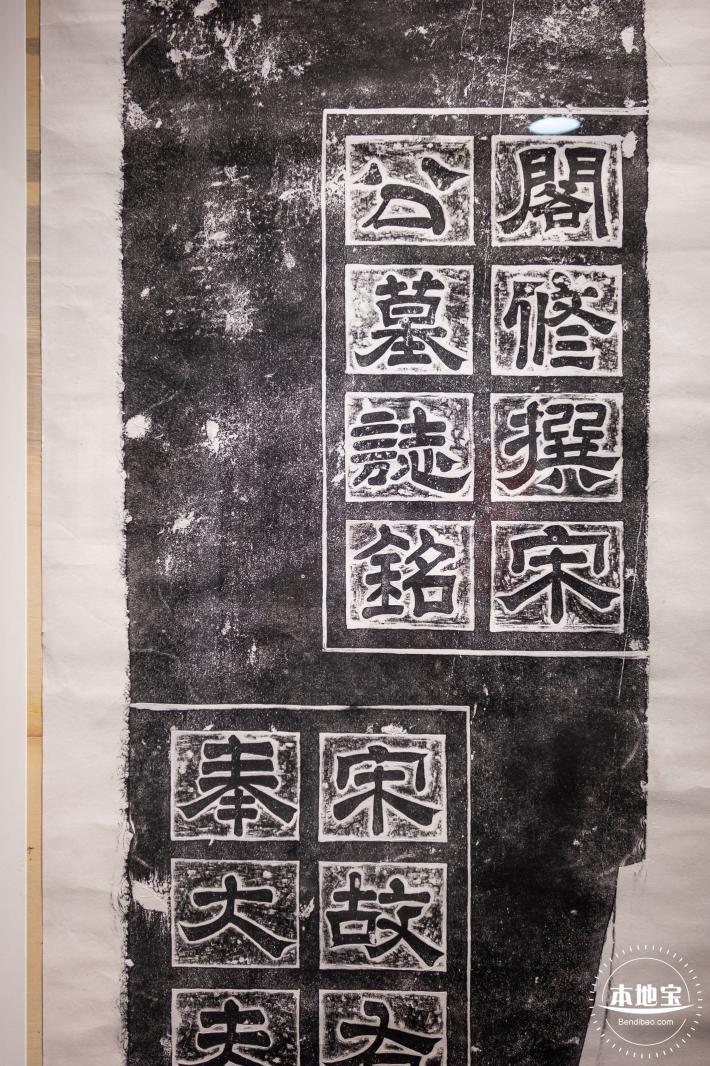 閣修撰宋
公墓誌銘
宋故右
奉大夫
本地宝
Bendibao.com